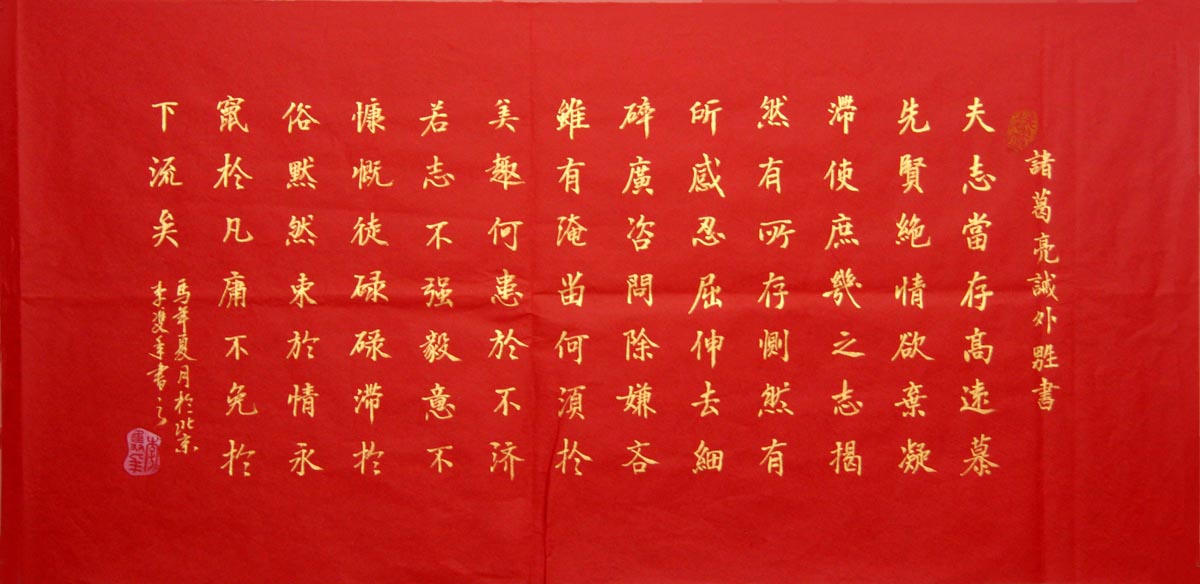 諸葛亮誡外甥書
夫志當存高遠慕
先賢絶情欲棄凝
滯使庶幾之志揭
然有所存惻然有
所感忍屈伸去細
碎廣咨問除嫌吝
雖有淹留何須於
美趣何患於不济
若志不强毅意不
慷慨徒碌碌滞於
俗默然束於情永
竄於凡庸不免於
下流矣
馬年夏月於北京
李雙年書之